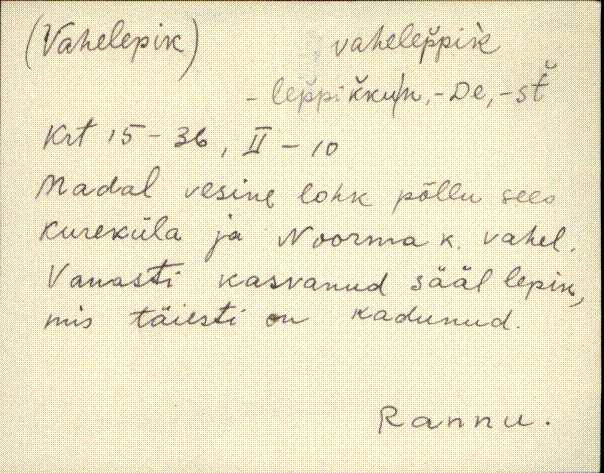 (Vahelepik) vahelep̌pik
- lep̌pik̆ku/n, -De, -st̆
Krt 15-36, II - 10
Madal vesine lohk põllu sees
Kureküla ja Noorma k. vahel.
Vanasti kasvanud sääl lepik,
mis täiesti on kadunud.
Rannu.